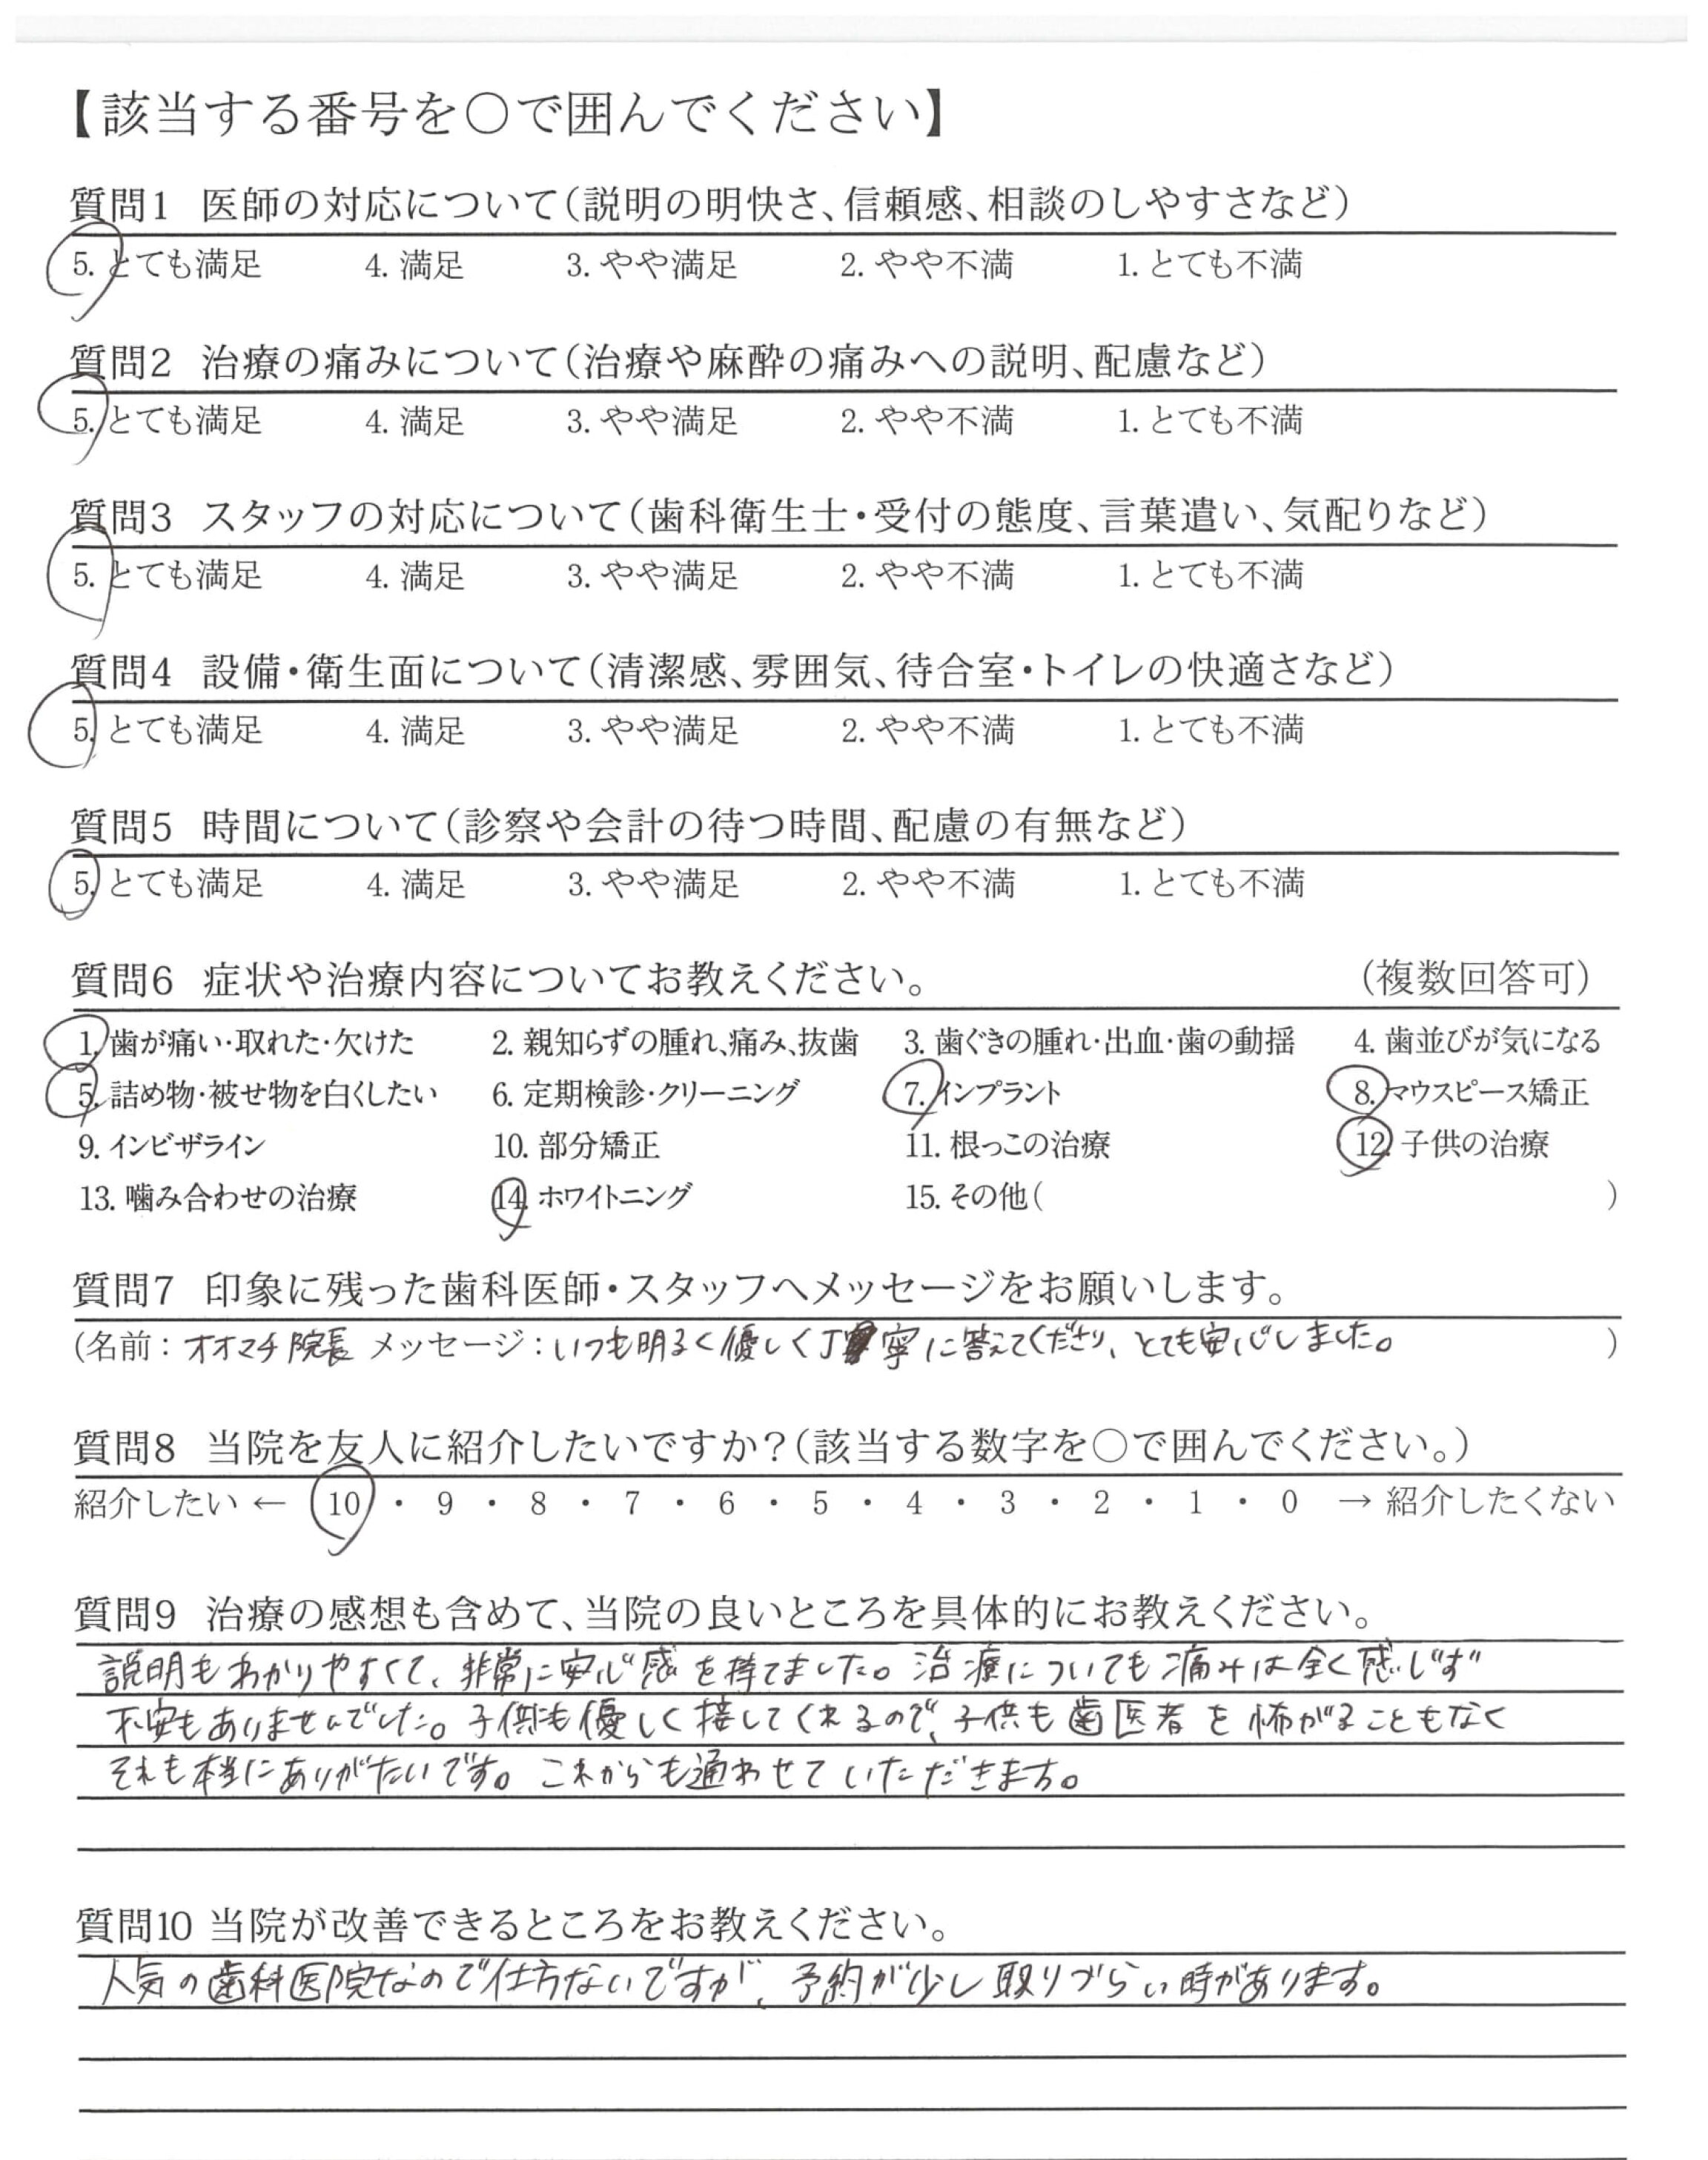 【該当する番号を〇で囲んでください】
質問1 医師の対応について(説明の明快さ、信頼感、相談のしやすさなど)
5. とても満足 4. 満足 3. やや満足 2. やや不満 1. とても不満
質問2 治療の痛みについて(治療や麻酔の痛みへの説明、配慮など)
5. とても満足 4. 満足 3. やや満足 2. やや不満 1. とても不満
質問3 スタッフの対応について(歯科衛生士・受付の態度、言葉遣い、気配りなど)
5. とても満足 4. 満足 3. やや満足 2. やや不満 1. とても不満
質問4 設備・衛生面について(清潔感、雰囲気、待合室・トイレの快適さなど)
5. とても満足 4. 満足 3. やや満足 2. やや不満 1. とても不満
質問5 時間について(診察や会計の待つ時間、配慮の有無など)
5. とても満足 4. 満足 3. やや満足 2. やや不満 1. とても不満
質問6 症状や治療内容についてお教えください。 (複数回答可)
1. 歯が痛い・取れた・欠けた 2. 親知らずの腫れ、痛み、抜歯 3. 歯ぐきの腫れ・出血・歯の動揺 4. 歯並びが気になる
5. 詰め物・被せ物を白くしたい 6. 定期検診・クリーニング 7. インプラント 8. マウスピース矯正
9. インビザライン 10. 部分矯正 11. 根っこの治療 12. 子供の治療
13. 噛み合わせの治療 14. ホワイトニング 15. その他( )
質問7 印象に残った歯科医師・スタッフへメッセージをお願いします。
(名前：オオマチ院長 メッセージ：いつも明るく優しく丁寧に答えてくださり、とても安心しました。 )
質問8 当院を友人に紹介したいですか？(該当する数字を〇で囲んでください。)
紹介したい ← 10 ・ 9 ・ 8 ・ 7 ・ 6 ・ 5 ・ 4 ・ 3 ・ 2 ・ 1 ・ 0 → 紹介したくない
質問9 治療の感想も含めて、当院の良いところを具体的にお教えください。
説明もわかりやすくて、非常に安心感を持てました。治療についても痛みは全く感じず
不安もありませんでした。子供にも優しく接してくれるので、子供も歯医者を怖がることもなく
それも本当にありがたいです。これからも通わせていただきます。
質問10 当院が改善できるところをお教えください。
人気の歯科医院なので仕方ないですが、予約が少し取りづらい時があります。